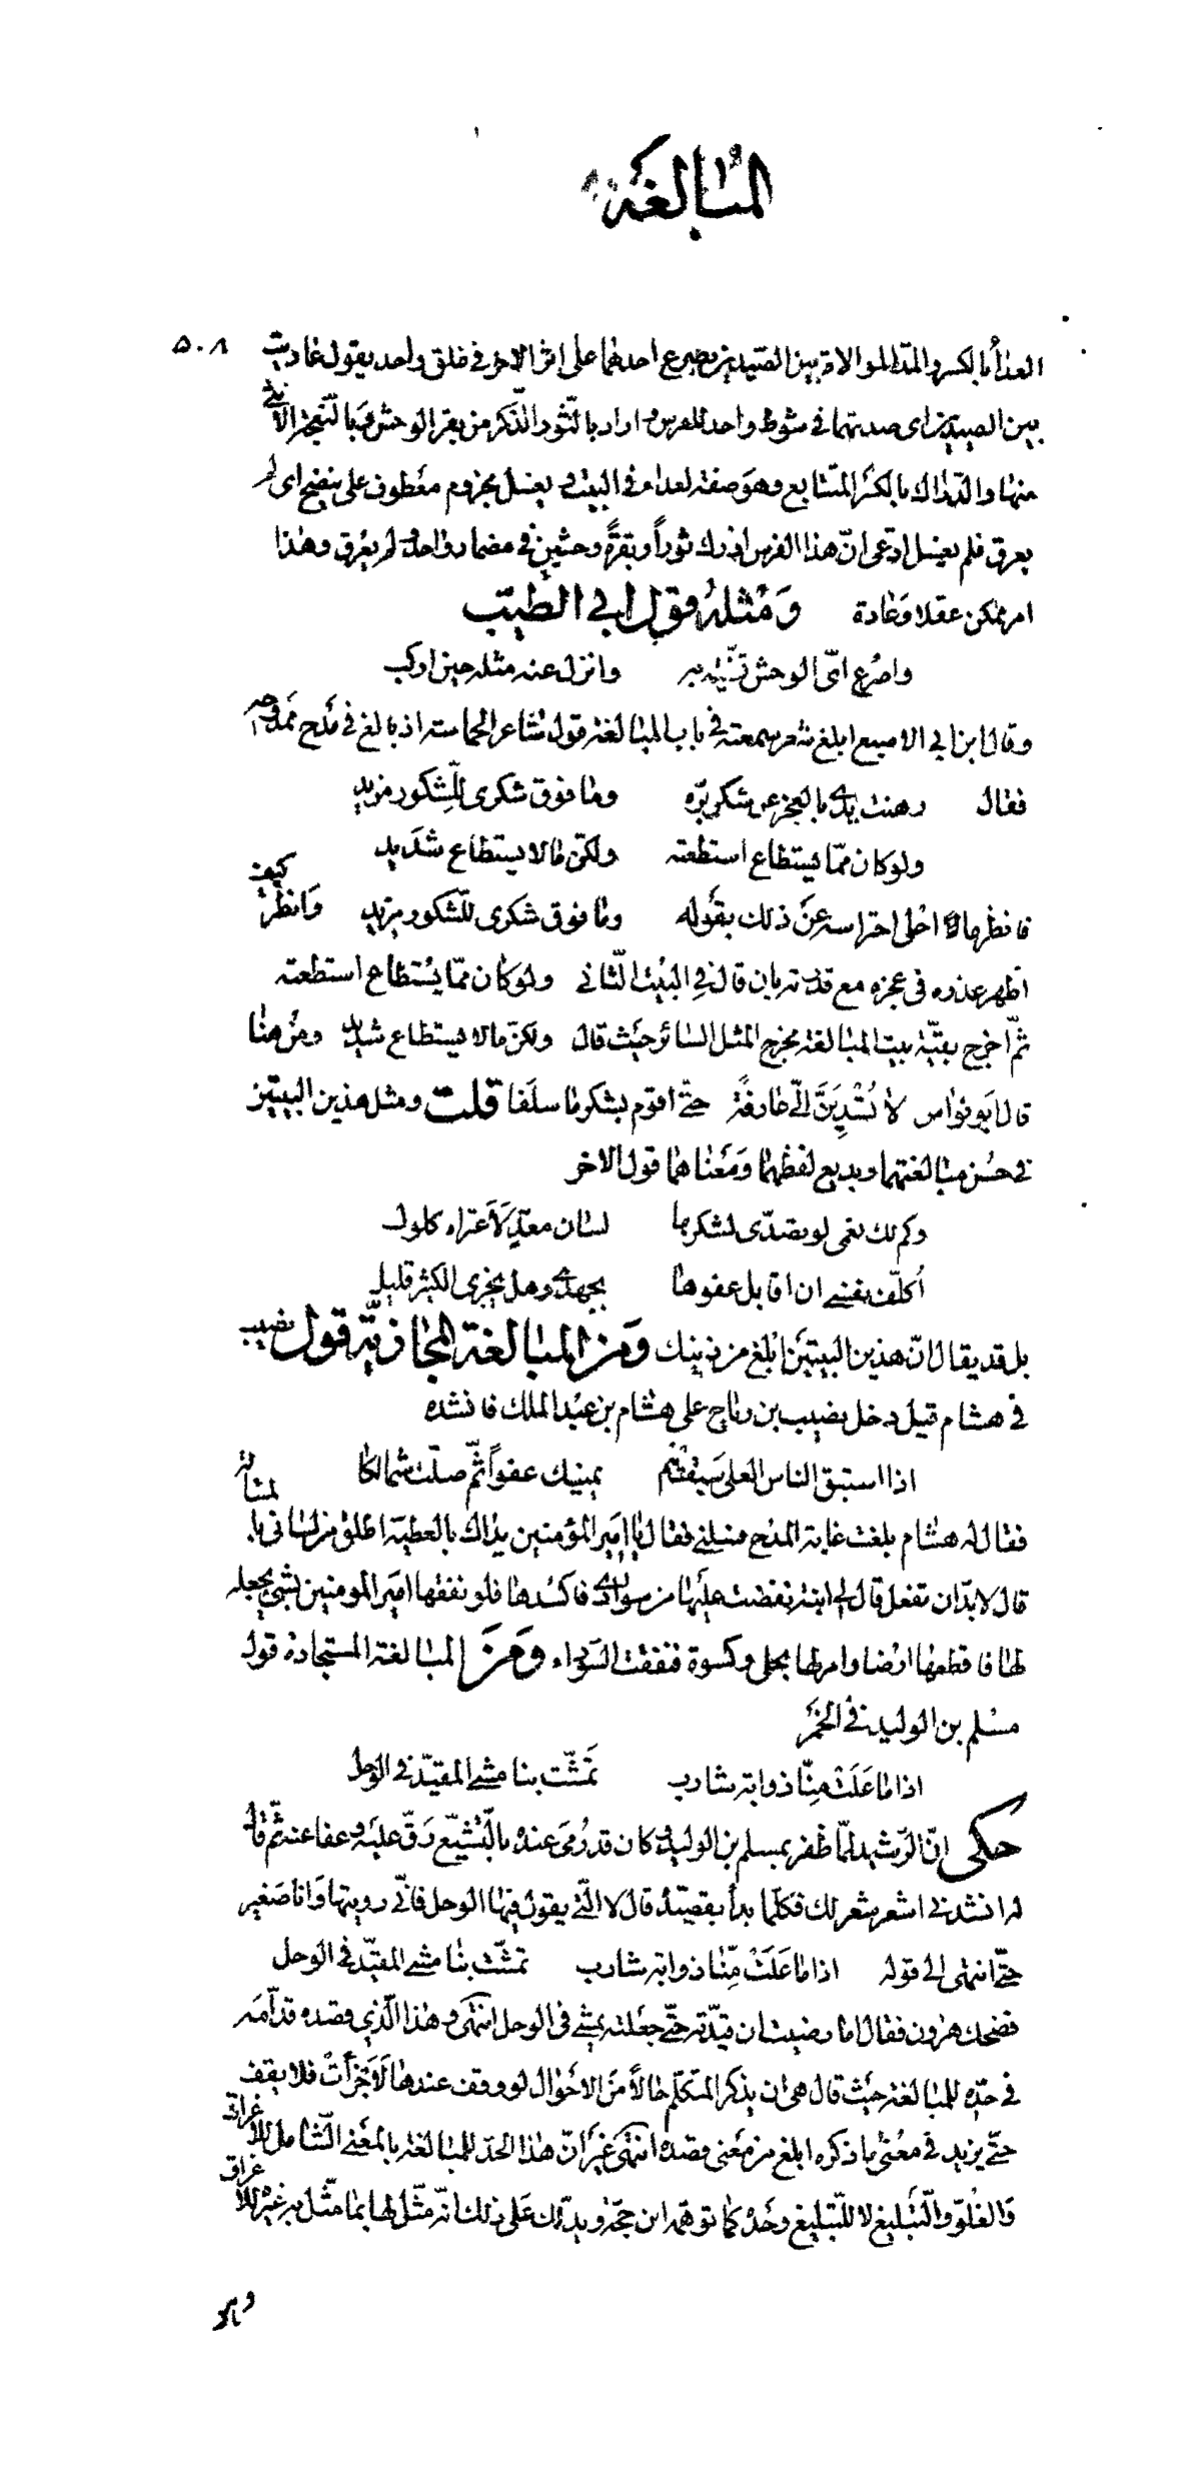 المبالغة
العداء بالكسر والمدّ الموالاة بين الصّيدين يصرع احدهما على اثر الاخر فى طلق واحد يقول عاديت ٥٠٨
بين الصيدين اى صدتهما فى شوط واحد للفرس و اراد بالثّور الذّكر من بقر الوحش و بالنّعجة الانثى
منها والدّراك بالكسر المتتابع وهو صفة لعداء و فى البيت و يغسل مجزوم معطوف على ينضح اى لم
يعرق فلم يغسل ادّعى انّ هذا الفرس ادرك ثوراً وبقرةً وحشيين فى مضمار واحد و لم يعرق وهذا
امر ممكن عقلا وعادة وَمثلهُ قول ابى الطيّب
واصرع اىّ الوحش قفّيته به وانزل عنه مثله حين اركب
وقال ابن ابى الاصبع ابلغ شعر سمعته فى باب المبالغة قول شاعر الحماسة اذ بالغ فى مدح ممدوحه
فقال رهنت يدى بالعجز عن شكر برّه وما فوق شكرى للّشكور مزيد
ولو كان ممّا يستطاع استطعته ولكنّ ما لا يستطاع شديد
فانظر ما احلى احتراسه عن ذلك بقوله وما فوق شكرى للّشكور مزيد وانظر كيف
اظهر عذره فى عجزه مع قدرته بان قال فى البيت الثّانى ولو كان ممّا يستطاع استطعته
ثمّ اخرج بقيّة بيت المبالغة مخرج المثل السائر حيث قال ولكنّ ما لا يستطاع شديد ومن هنا
قال ابو نواس لا تُسْدِيَنَّ الىّ عارفةً حتّى اقوم بشكر ما سلفا قلت ومثل هذين البيتين
فى حسن مبالغتهما وبديع لفظهما ومعناهما قول الاخر
وكم لك نعمى لو تصدّى لشكرها لسان معدّ لاعتراه كلول
أكلّف نفسى ان اقابل عفوها بجهدى وهل يجزى الكثير قليل
بل قد يقال انّ هذين البيتين ابلغ من ذينك وَمن المبالغة المجازيّة قول نصيب
فى هشام قيل دخل نصيب بن رباح على هشام بن عبد الملك فانشده
اذا استبق الناس العلى سبقتهم يمينك عفواً ثمّ صلّت شمالكا
فقال له هشام بلغت غاية المدح فسلنى فقال يا امير المؤمنين يداك بالعطيّة اطلق من لسانى بالمسألة
قال لا بدّ ان تفعل قال لى ابنة نفضت عليها من سوادى فاكسدها فلو نفقها امير المومنين بشىء يجعله
لها فاقطعها ارضا وامر لها بحلى وكسوة فنفقت السّوداء وَمن المبالغة المستجادة قول
مسلم بن الوليد فى الخمر
اذا ما عَلَتْ منّا ذوابة شارب تمشّت بنا مشى المقيّد فى الوحل
حكى انّ الرّشيد لمّا ظفر بمسلم بن الوليد و كان قد رُمى عنده بالتّشيّع رقّ عليه و عفا عنه ثم قال
له انشدنى اشعر شعر لك فكلّما بدأ بقصيدة قال لا الّتى يقول فيها الوحل فانّى رويتها وانا صغير
حتّى انتهى الى قوله اذا ما عَلَتْ منّا ذوابة شارب تمشّت بنا مشى المقيّد فى الوحل
فضحك هرون فقال اما رضيت ان قيّدته حتّى جعلته يمشى فى الوحل انتهى و هذا الّذى قصده قدامة
فى حدّه للمبالغة حيث قال هى ان يذكر المتكلّم حالاً من الاحوال لو وقف عندها لاجزأت فلا يقف
حتّى يزيد فى معنى ما ذكره ابلغ من معنى قصده انتهى غير انّ هذا الحدّ للمبالغة بالمعنى الشّامل للاغراق
والغلوّ والتّبليغ لا للتّبليغ وحده كما توهّمه ابن حجّة و يدلّك على ذلك انّه مثّل لها بما مثّل به غيره للاغراق